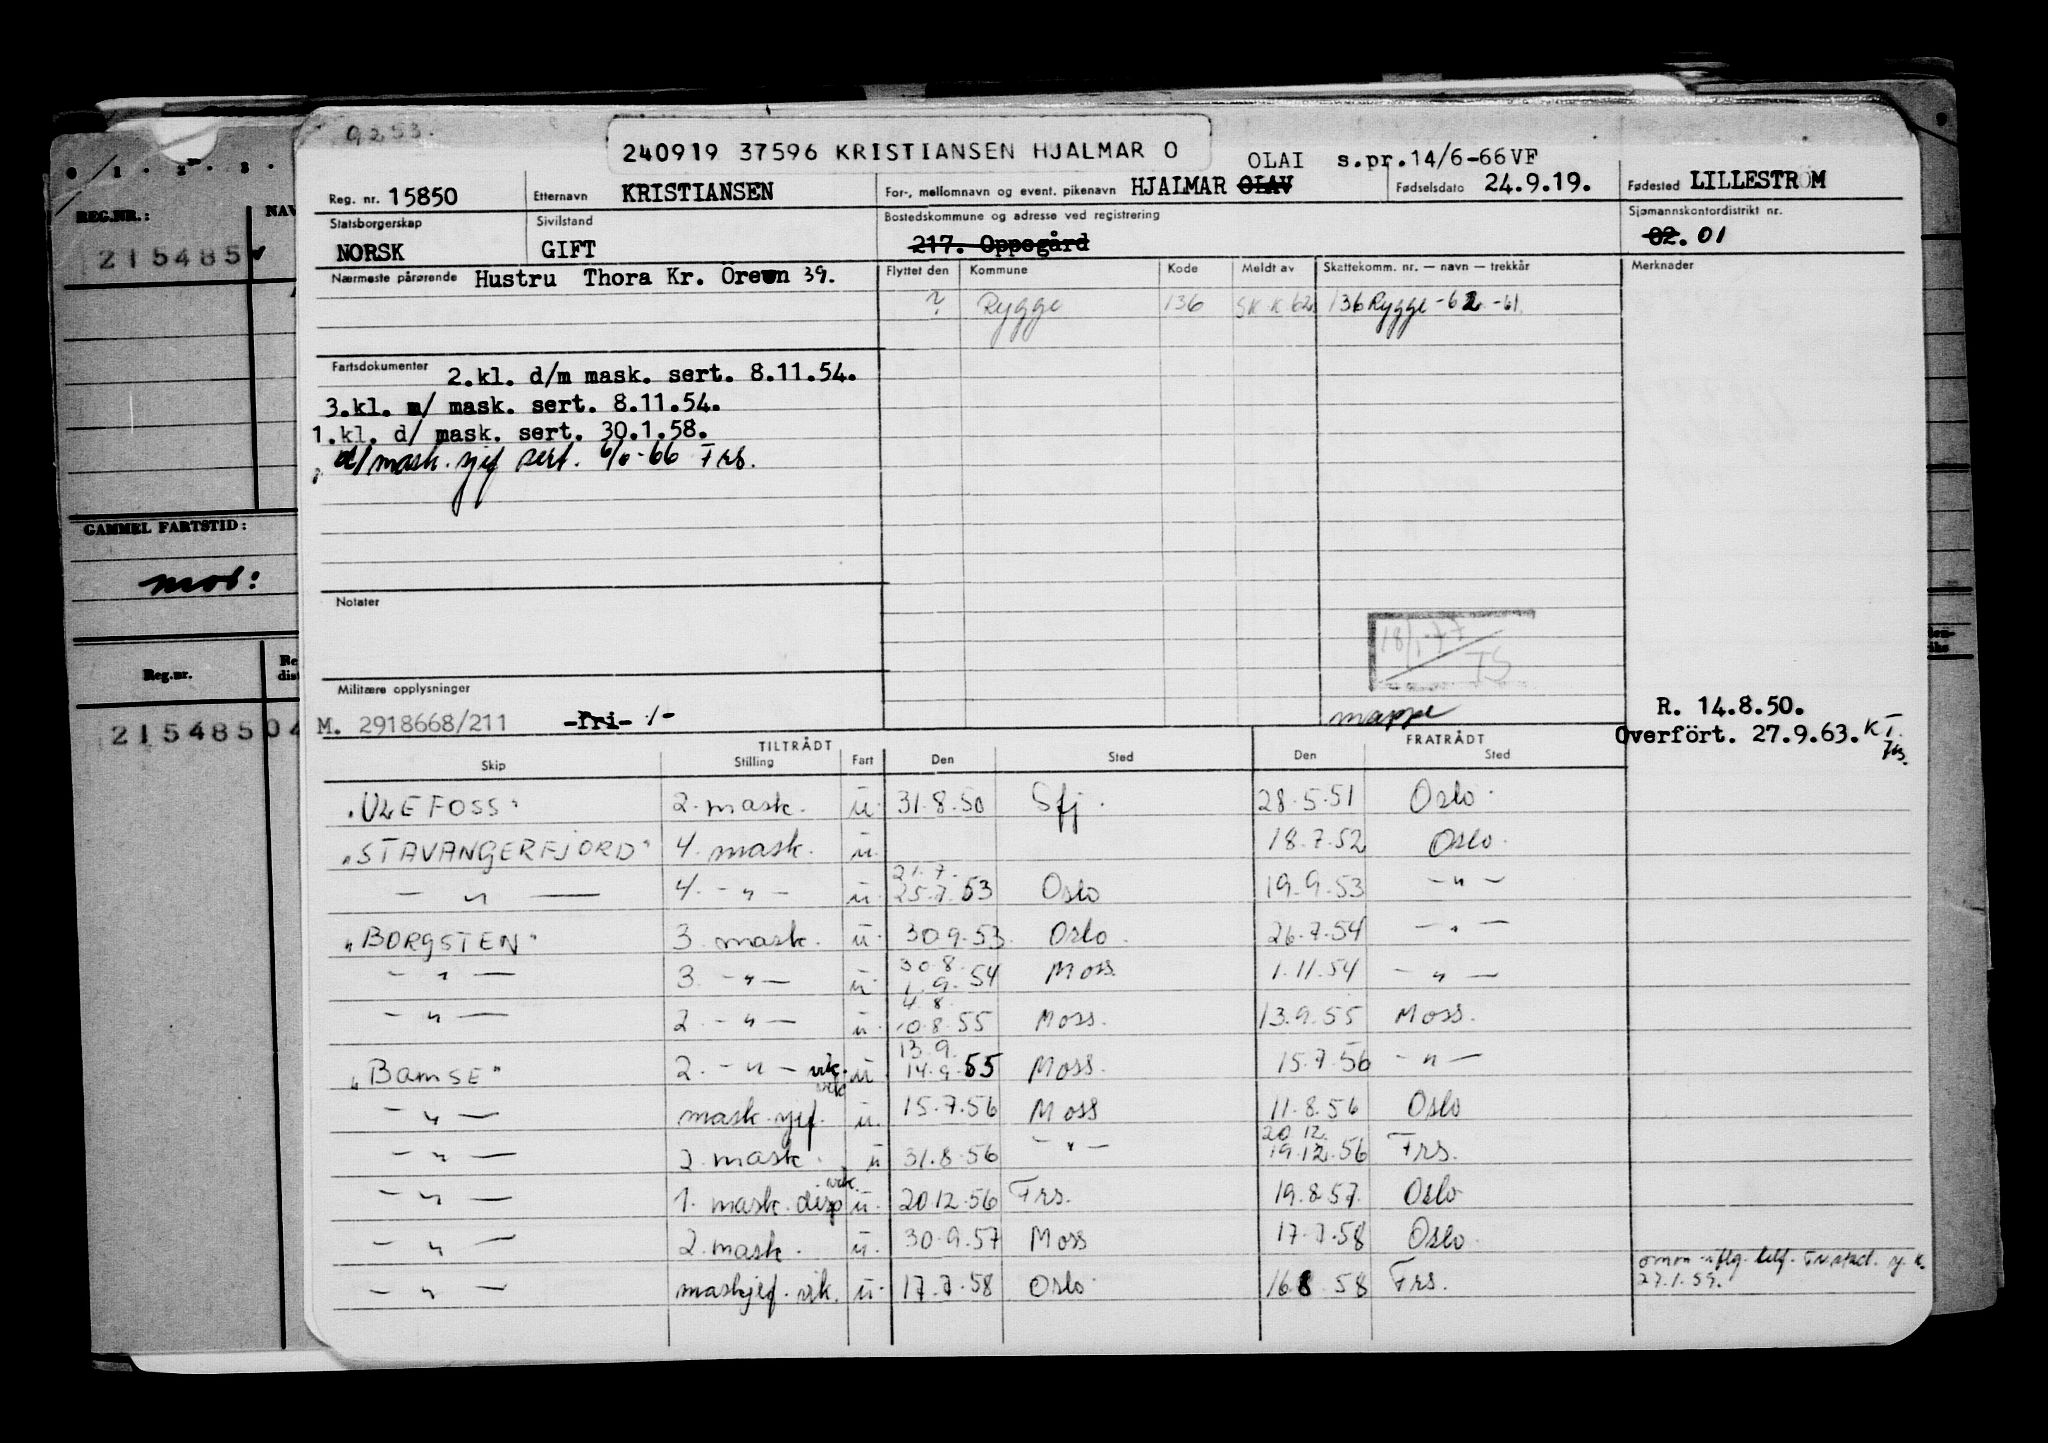 9253.
240919 37596 KRISTIANSEN HJALMAR O
OLAI s.pr.14/6-66VF
Reg. nr. 15850 Etternavn KRISTIANSEN For-, mellomnavn og event. pikenavn HJALMAR OLAV Fødselsdato 24.9.19. Fødested LILLESTRØM
Statsborgerskap NORSK Sivilstand GIFT Bostedskommune og adresse ved registrering 217. Oppegård Sjømannskontordistrikt nr. 02. 01
Nærmeste pårørende Hustru Thora Kr. Örewn 39. Flyttet den Kommune Kode Meldt av Skattekomm. nr. — navn — trekkår Merknader
? Rygge 136 SK K 62 136 Rygge -62 -61
Fartsdokumenter 2.kl. d/m mask. sert. 8.11.54.
3.kl. m/ mask. sert. 8.11.54.
1.kl. d/ mask. sert. 30.1.58.
d/ mask. sjef sert. 6/6-66 Frs.
Notater
18/1-77
TS
Militære opplysninger
M. 2918668/211 -fri- -/-
mappe
R. 14.8.50.
Overfört. 27.9.63. KT.
Frs.
TILTRÅDT FRATRÅDT
Skip Stilling Fart Den Sted Den Sted
"ULEFOSS" 2. mask. u. 31.8.50 Sfj. 28.5.51 Oslo.
"STAVANGERFJORD" 4. mask. u. 18.7.52 Oslo.
21.7.
— " — 4. - " - u. 25.7.53 Oslo 19.9.53 - " -
"BORGSTEN" 3. mask. u. 30.9.53. Oslo. 26.7.54 - " -
30.8.
- " - 3. - " - u. 1.9.54 Moss. 1.11.54 - " -
4.8.
- " - 2. - " - u. 10.8.55 Moss. 13.9.55 Moss.
13.9.
"BAMSE" 2. - " - vik. u. 14.9.55 Moss. 15.7.56 - " -
vik
- " - mask. sjef. u. 15.7.56 Moss 11.8.56 Oslo
20.12.
- " - 2. mask. u 31.8.56 - " - 19.12.56 Frs.
vik.
- " - 1. mask. disp u. 20.12.56 Frs. 19.8.57. Oslo
- " - 2. mask. u. 30.9.57 Moss 17.7.58 Oslo.
- " - maskjef. vik. u. 17.7.58 Oslo. 16.8.58 Frs.
27.1.59.
0 1 . 2 . 3 .
REG.NR.: NAV
215485
GAMMEL FARTSTID:
mob:
Reg.nr. Re
dis
215485 04